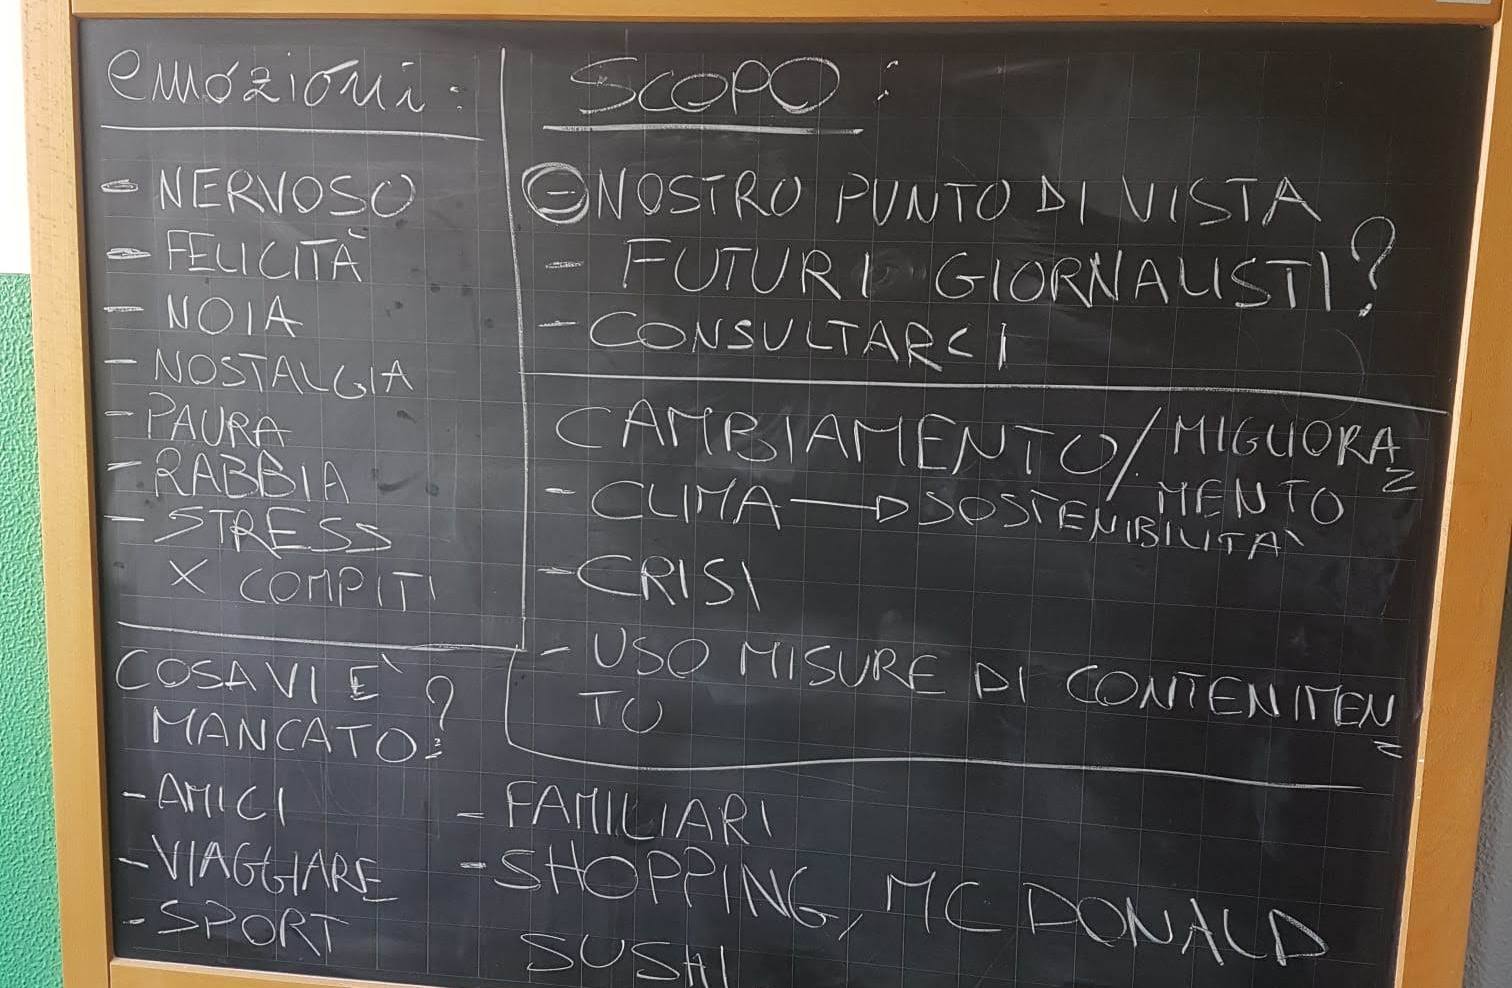 emozioni:
- NERVOSO
- FELICITÀ
- NOIA
- NOSTALGIA
- PAURA
- RABBIA
- STRESS
X COMPITI
SCOPO:
- NOSTRO PUNTO DI VISTA
- FUTURI GIORNALISTI?
- CONSULTARCI
CAMBIAMENTO/MIGLIORA=
MENTO
- CLIMA → SOSTENIBILITÀ
- CRISI
- USO MISURE DI CONTENIMEN=
TO
COSA VI È
MANCATO?
- AMICI
- VIAGGIARE
- SPORT
- FAMILIARI
- SHOPPING, MC DONALD
SUSHI